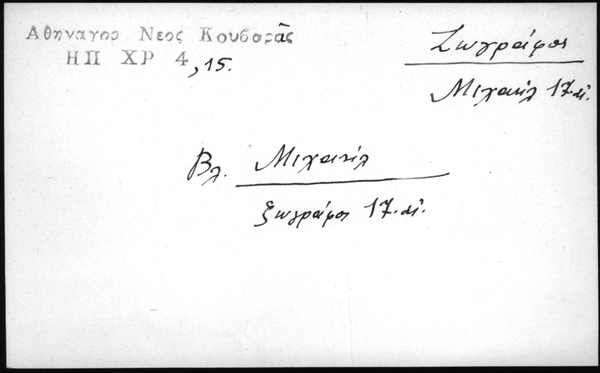 Αθηναγορ Νεος Κουδαρᾶς
ΗΠ ΧΡ 4, 15.
Ζωγράφος
Μιχαήλ 17. αἰ.
Βλ. Μιχαήλ
ζωγράφος 17. αἰ.